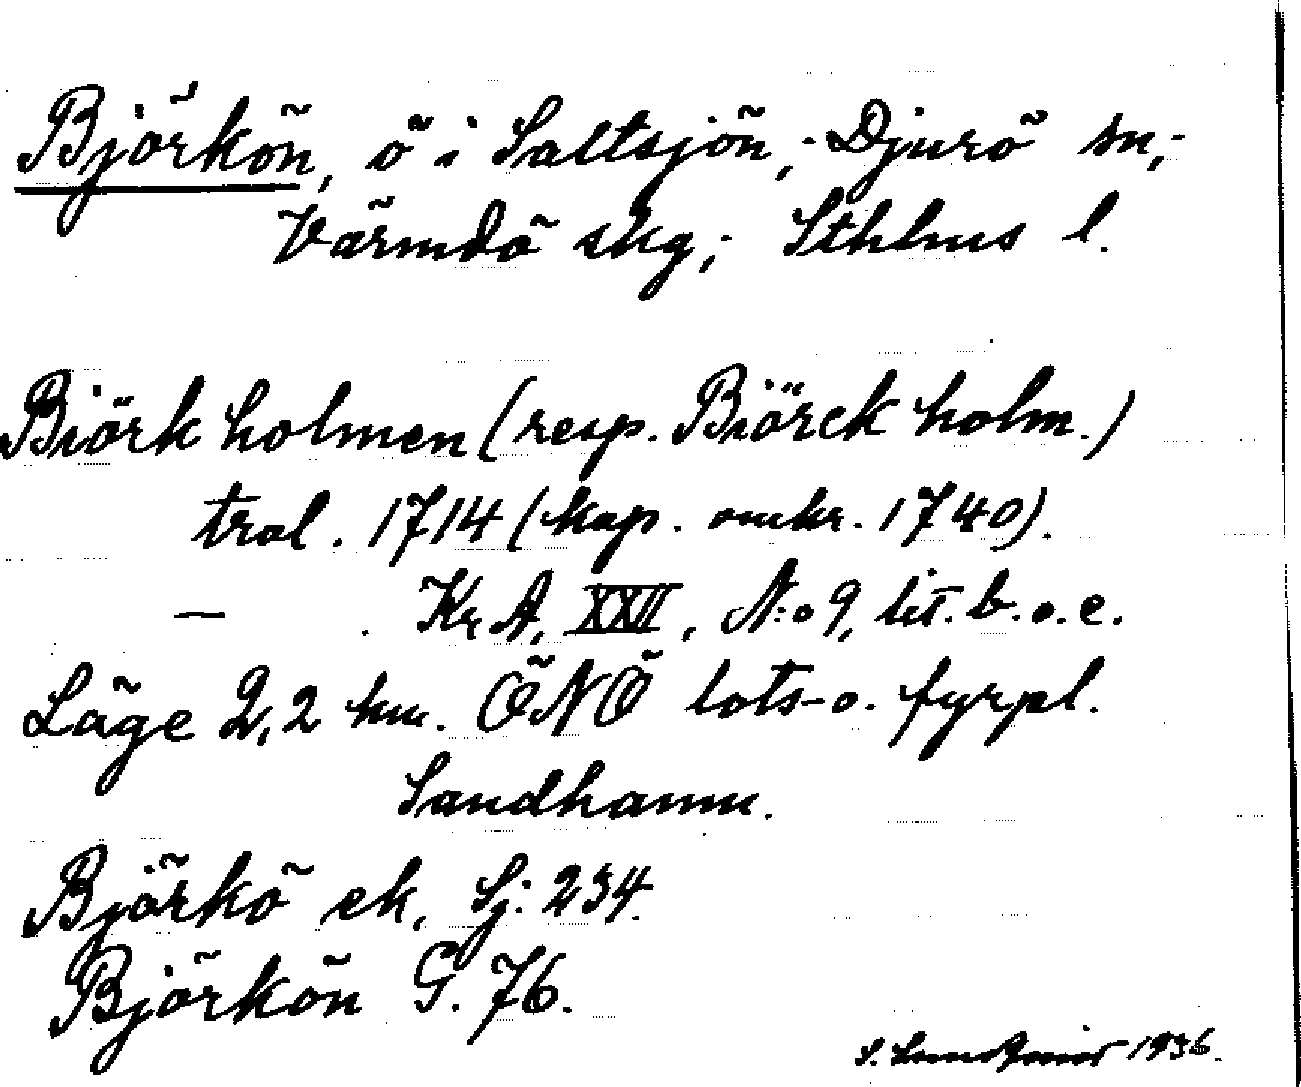 Björkön, ö i Saltsjön,- Djurö sn,-
Värmdö skg,- Sthlms l.
Biörk holmen (resp. Biörck holm.)
tral. 1714 (kop. omkr. 1740).
— Kr A, XXII, N:o 9, lit. b. o. c.
Läge 2,2 km. ÖNÖ lots- o. fyrpl.
Sandhamn.
Björkö ek. Sj: 234.
Björkön G. 76.
S. 1936.